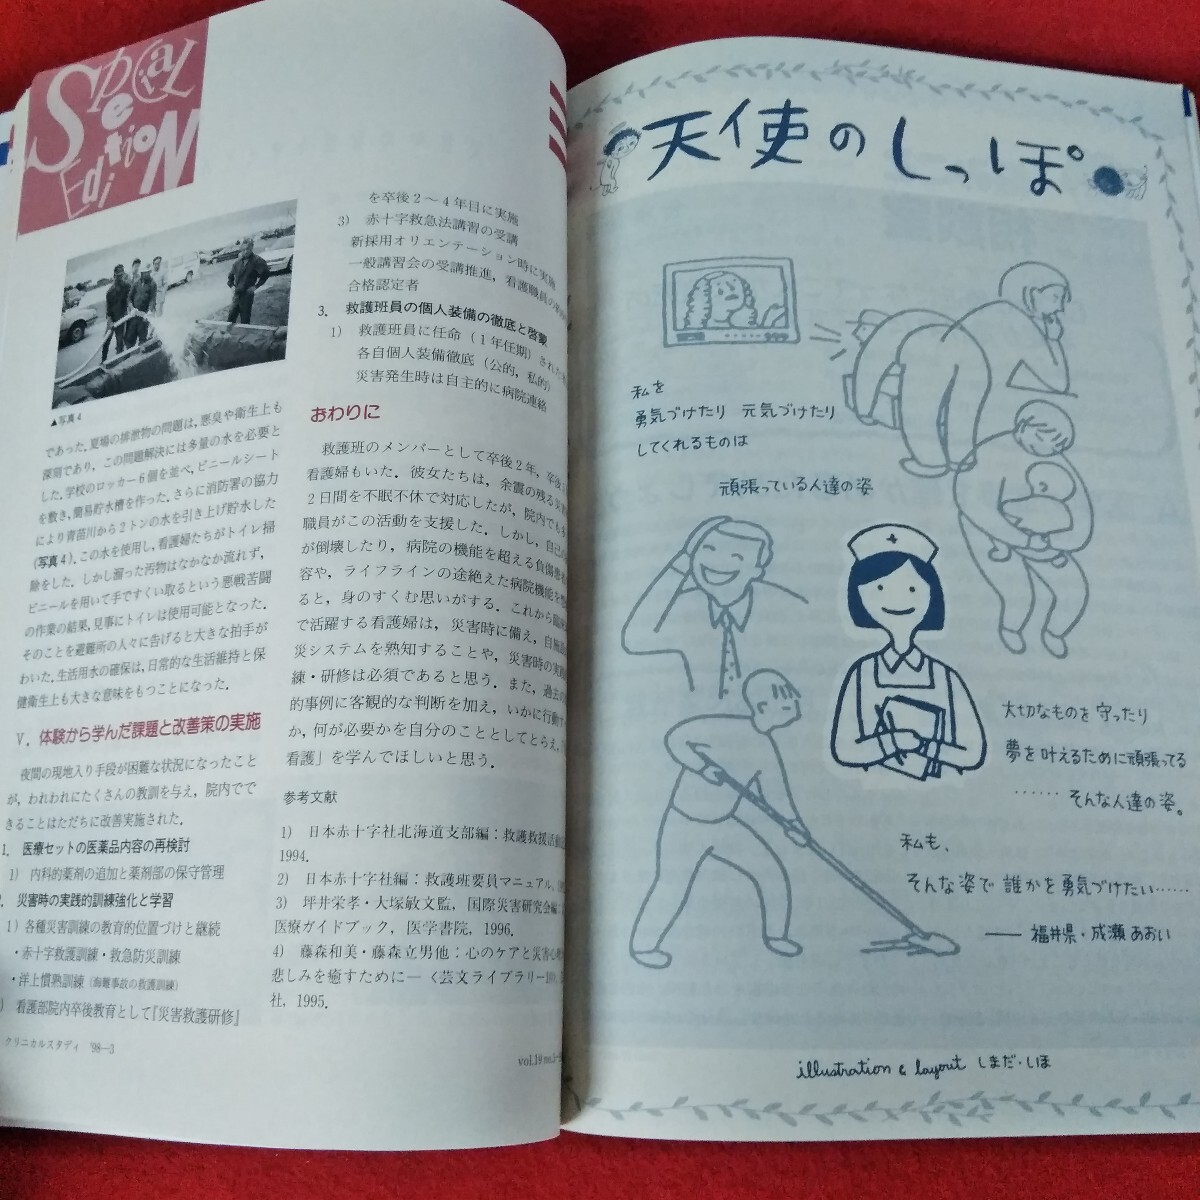 Special Edition
▲写真4
であった.夏場の排泄物の問題は,悪臭や衛生上も
深刻であり,この問題解決には多量の水を必要と
した.学校のロッカー6個を並べ,ビニールシート
を敷き,簡易貯水槽を作った.さらに消防署の協力
により青苗川から2トンの水を引き上げ貯水した
(写真4).この水を使用し,看護婦たちがトイレ掃
除をした.しかし溜った汚物はなかなか流れず,
ビニールを用いて手ですくい取るという悪戦苦闘
の作業の結果,見事にトイレは使用可能となった.
そのことを避難所の人々に告げると大きな拍手が
わいた.生活用水の確保は,日常的な生活維持と保
健衛生上も大きな意味をもつことになった.
V.体験から学んだ課題と改善策の実施
夜間の現地入り手段が困難な状況になったこと
が,われわれにたくさんの教訓を与え,院内でで
きることはただちに改善実施された.
1.医療セットの医薬品内容の再検討
1) 内科的薬剤の追加と薬剤部の保守管理
災害時の実践的訓練強化と学習
1)各種災害訓練の教育的位置づけと継続
・赤十字救護訓練・救急防災訓練
・洋上慣熟訓練(海難事故の救護訓練)
看護部院内卒後教育として『災害救護研修』
を卒後2〜4年目に実施
3) 赤十字救急法講習の受講
新採用オリエンテーション時に実施
一般講習会の受講推進,看護職員の
合格認定者
3.救護班員の個人装備の徹底と啓蒙
1) 救護班員に任命(1年任期)された
各自個人装備徹底(公的,私的)
災害発生時は自主的に病院連絡
おわりに
救護班のメンバーとして卒後2年,卒後
看護婦もいた.彼女たちは,余震の残る
2日間を不眠不休で対応したが,院内でも
職員がこの活動を支援した.しかし,自己の
が倒壊したり,病院の機能を超える負傷患者
容や,ライフラインの途絶えた病院機能を
ると,身のすくむ思いがする.これから
で活躍する看護婦は,災害時に備え,自施設
災システムを熟知することや,災害時の実践
練・研修は必須であると思う.また,過去の
的事例に客観的な判断を加え,いかに行動す
か,何が必要かを自分のこととしてとらえ,
看護」を学んでほしいと思う.
参考文献
1) 日本赤十字社北海道支部編:救護救援活動
1994.
2) 日本赤十字社編:救護班要員マニュアル,
3) 坪井栄孝・大塚敏文監,国際災害研究会編:
医療ガイドブック,医学書院,1996.
4) 藤森和美・藤森立男他:心のケアと災害心
悲しみを癒すために―〈芸文ライブラリー
社,1995.
クリニカルスタディ '98―3
vol.19 no.
天使のしっぽ
私を
勇気づけたり 元気づけたり
してくれるものは
頑張っている人達の姿
大切なものを守ったり
夢を叶えるために頑張ってる
……そんな人達の姿。
私も、
そんな姿で誰かを勇気づけたい……
――福井県・成瀬あおい
illustration & layout しまだ・しほ